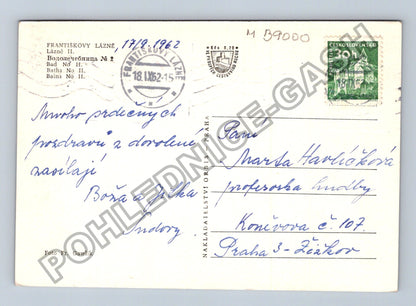 17/9 1962
M B9000
FRANTIŠKOVY LÁZNĚ
Lázně II.
Водолечебница № 2
Bad No II.
Baths No II.
Bains No II.
FRANTIŠKOVY LÁZNĚ
18.IX.62-15
ČESKOSLOVENSKO
30h
Mnoho srdečných
pozdravů z dovolené
zasílají
Boža a Jirka
Šindovy
Foto Fr.
NAKLADATELSTVÍ ORBIS, PRAHA
Paní
Marta Havlíčková
profesorka hudby
Koněvova č. 107
Praha 3 - Žižkov
POHLEDNICE-GASH